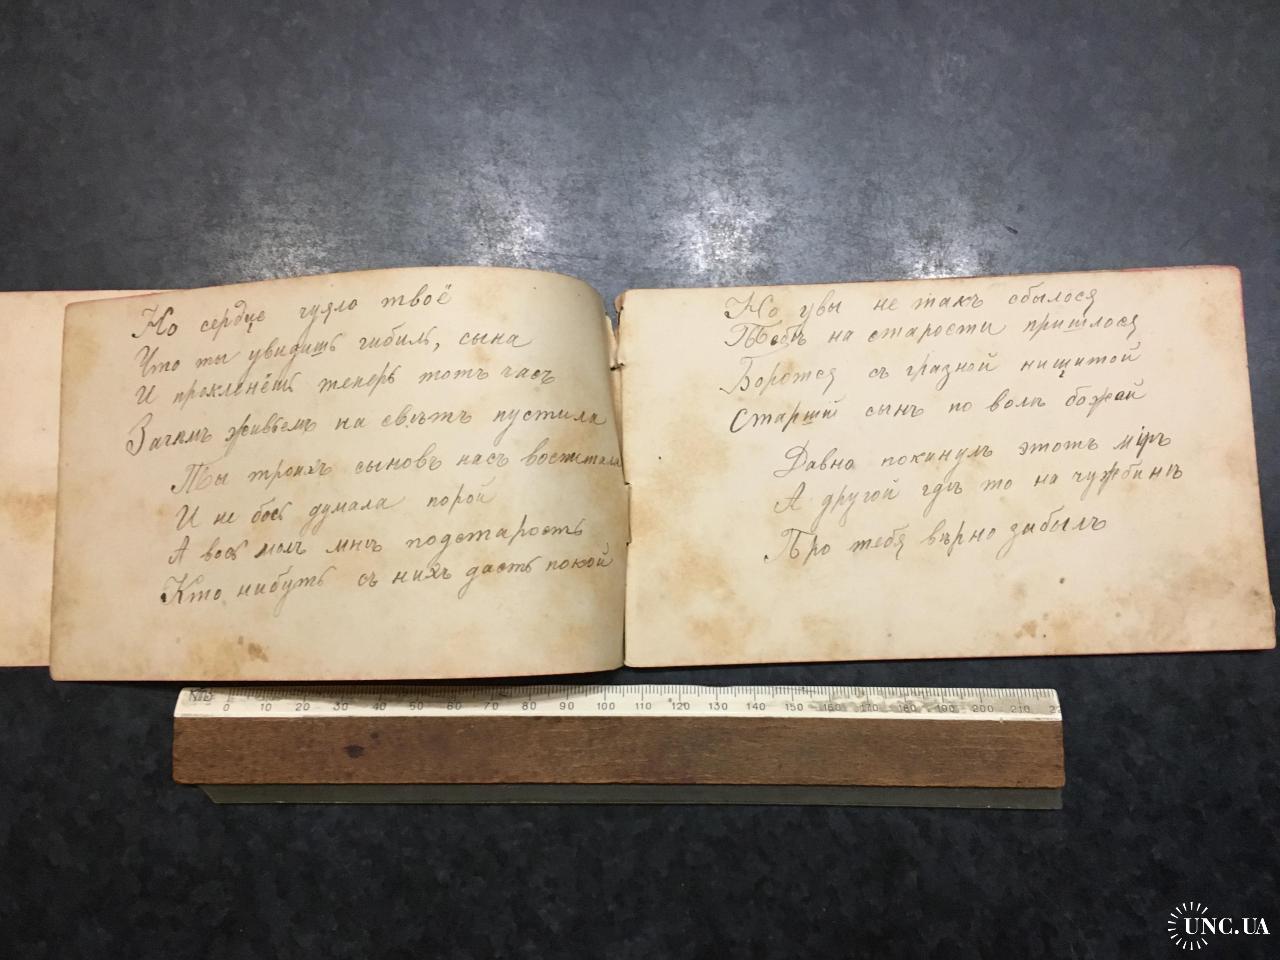 Но сердце чуяло твоё
Что ты увидишь гибиль, сына
И проклянёшь теперь тотъ часъ
Зачемъ живьемъ на светъ пустила
Ты троихъ сыновъ насъ воспитала
И не бось думала порой
А вось молъ мнѣ подстарость
Кто нибуть съ нихъ дасть покой
Но увы не такъ сбылося
Тебѣ на старости пришлося
Боротся съ грязной нищитой
Старшій сынъ по волѣ божей
Давно покинулъ этотъ міръ
А другой гдѣ то на чужбинѣ
Про тебя вѣрно забылъ
0 10 20 30 40 50 60 70 80 90 100 110 120 130 140 150 160 170 180 190 200 210
UNC.UA